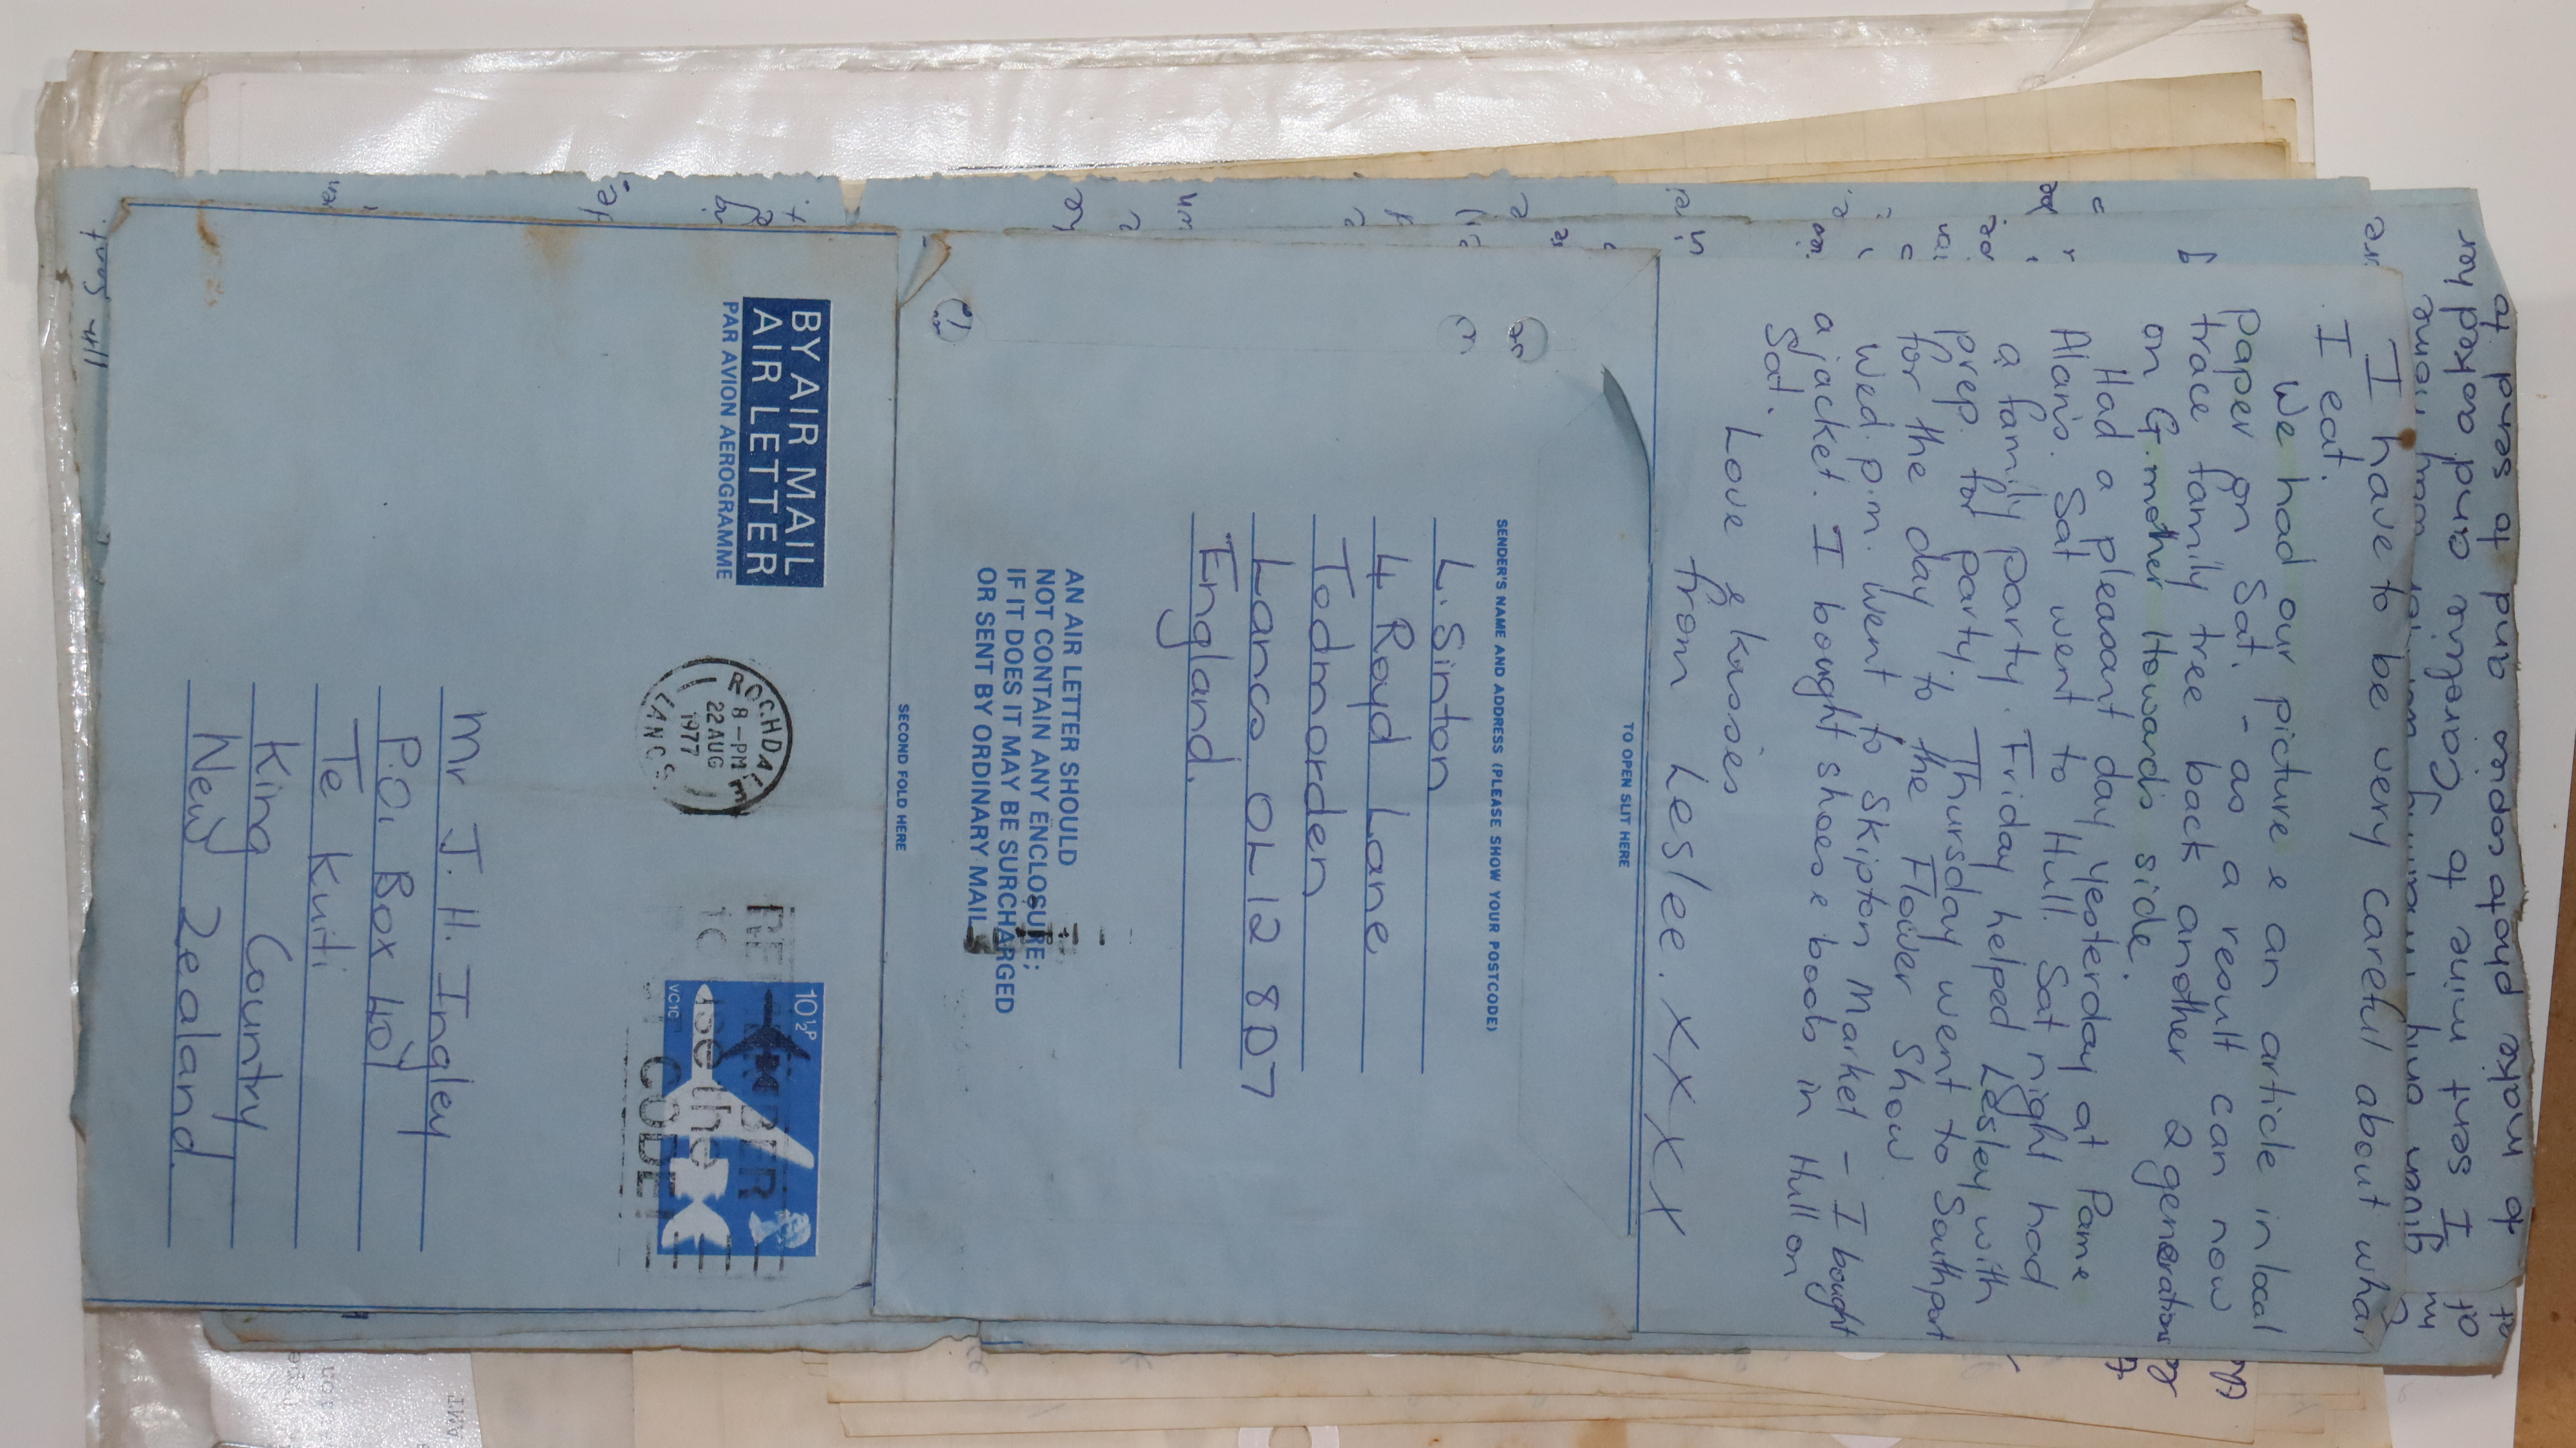 I have to be very careful about what
I eat.
We had our picture & an article in local
paper on Sat. - as a result can now
trace family tree back another 2 generations
on G.mother Howards side.
Had a pleasant day yesterday at Pam &
Alan's. Sat went to Hull. Sat night had
a family party. Friday helped Lesley with
prep. for party. Thursday went to Southport
for the day to the Flower Show
Wed. p.m. went to Skipton Market - I bought
a jacket. I bought shoes & boots in Hull on
Sat.
Love & kisses
from Leslee. X X X X
TO OPEN SLIT HERE
SENDER'S NAME AND ADDRESS (PLEASE SHOW YOUR POSTCODE)
L. Sinton
4 Royd Lane
Todmorden
Lancs OL12 8D7
England.
AN AIR LETTER SHOULD
NOT CONTAIN ANY ENCLOSURE;
IF IT DOES IT MAY BE SURCHARGED
OR SENT BY ORDINARY MAIL
SECOND FOLD HERE
BY AIR MAIL
AIR LETTER
PAR AVION AEROGRAMME
ROCHDALE
8-PM
22 AUG
1977
LANCS
REMEMBER
TO use the
POST CODE
10½P
VC10
Mr J. H. Ingley
P.O. Box 401
Te Kuiti
King Country
New Zealand.
11th Sept.
of make photo copies and to send to
I sent mine to Coretta and asked her